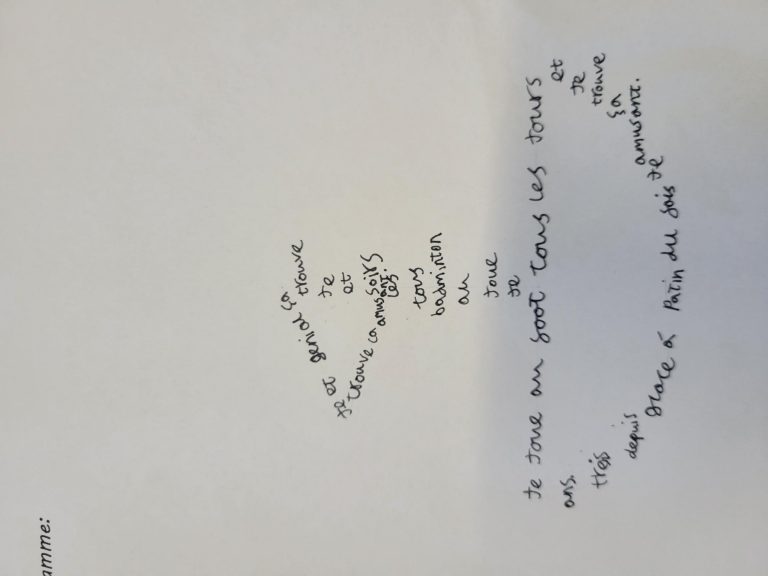 amme:
Je
joue
au
badminton
tous
les
soirs
et
Je
trouve
ça
génial
et
Je
trouve ça
amusant.
Je joue au foot tous les jours
et
Je
trouve
ça
amusant.
Je
fois du Patin à glace
depuis
trois
ans.